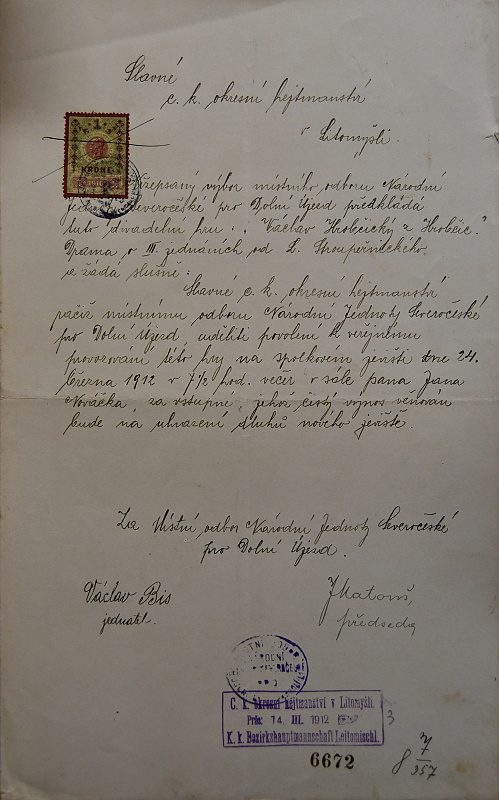 Slavné
c. k. okresní hejtmanství
v Litomyšli.
1
KRONE
Nízepsaný výbor místního odboru Národní
Jednoty Severočeské pro Dolní Újezd předkládá
tuto divadelní hru: „Václav Hrobčický z Hrobčic."
Drama o III. jednáních od L. Stroupežnického
a žádá slušně:
Slavné c. k. okresní hejtmanství
račiž místnímu odboru Národní Jednoty Severočeské
pro Dolní Újezd, uděliti povolení k veřejnému
provozování této hry na spolkovém jevišti dne 24.
března 1912 v 7 1/2 hod. večer v sále pana Jana
Nováčka, za vstupné, jehož čistý výnos věnován
bude na uhrazení dluhů nového jeviště.
Za Místní odbor Národní Jednoty Severočeské
pro Dolní Újezd.
Václav Bis
jednatel.
J Matouš,
předseda
C. k. okresní hejtmanství v Litomyšli.
Präs: 14. III. 1912
K. k. Bezirkshauptmannschaft Leitomischl.
3
6672
8 7/357